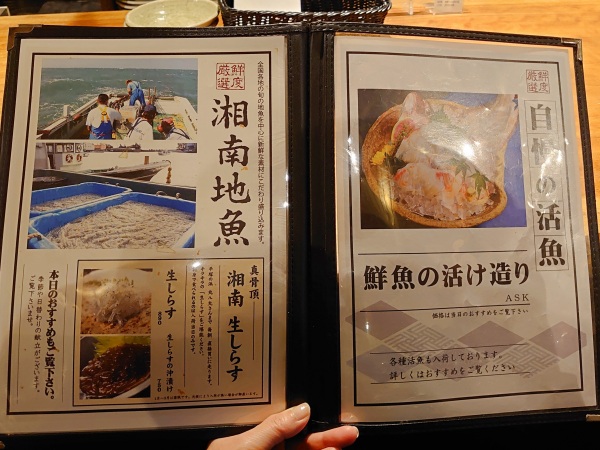 鮮度
厳選
湘南地魚
全国各地の旬の地魚を中心に新鮮な素材にこだわり盛り込みます。
真骨頂
湘南 生しらす
生しらす
生しらすの沖漬け
780
本日のおすすめもご覧下さい。
季節や日替わりの献立がございます。
ご覧下さいませ。
鮮度
厳選
自慢の活魚
鮮魚の活け造り
ASK
価格は当日のおすすめをご覧下さい
各種活魚も入荷しております。
詳しくはおすすめをご覧ください